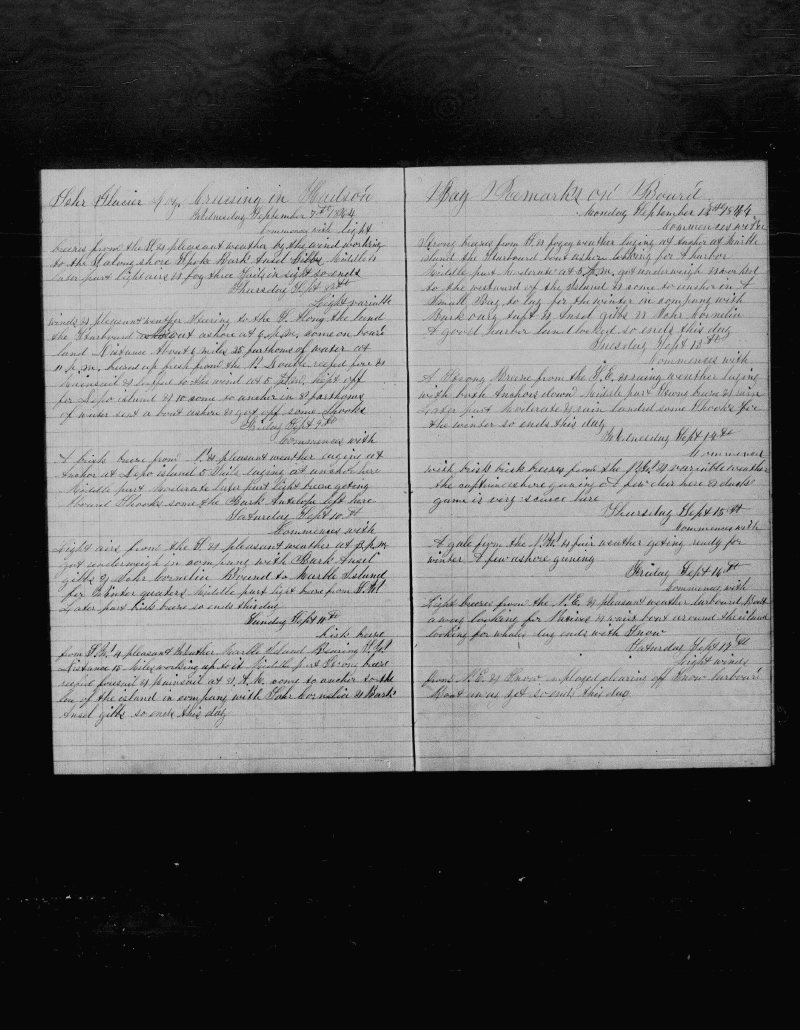 Schr Glacier of Crussing in Hudson
Wednesday September 7th 1864
Commences with light
breeses from the S & pleasant weather by the wind working
to the S along shore Spoke Bark Ansel Gibbs Middle &
Later part light airs & fog three Sail in sight so ends
Thursday Sept 8th
Light variable
winds & pleasant weather Stearing to the S. along the land
the Starbourd boat ashore at 6 p.m. come on board
land distance about 6 miles 25 farthoms of water at
11 p.m. breesed up fresh from the N. Double reefed fore &
Mainsail & luffed to the wind at 5 A.M. kept off
for Depo island at 10 come to anchor in farthoms
of water sent a boat ashore & got off some Shooks
Friday Sept 9th
Commences with
A brisk breese from N. & pleasant weather laying at
Anchor at Depo island 5 Sail laying at anchor here
Middle part Moderate later part light breese geting
board Shooks some the Bark Antelope left here
Saturday Sept 10th
Commences with
Light airs from the S. & pleasant weather at p.m.
got underweigh in company with Bark Ansel
gibbs & Schr Cornelia Bound to Marble Island
for Winter quaters Middle part light breese from S.W.
Later part brisk breese so ends this day
Sunday Sept 11th
Brisk breese
from S.W. & pleasant Weather Marble Island Bearing
Distance 15 Miles working up to it Middle part Strong breese
reefed foresail & mainsail at A.M. come to anchor to the
lee of the island in company with Schr Cornelia & Bark
Ansel gibbs so ends this day
Bay Remarks on Board
Monday September 12th 1864
Commences with
Strong breeses from & fogey weather laying at Anchor at Marble
island the Starbourd boat ashore looking for a harbor
Middle part Moderate at A.M. got underweigh & worked
to the westward of the Island & come to anchor in a
Small Bay to lay for the winter in company with
Bark Ansel gibbs & Schr Cornelia
A good harbor land locked so ends this day
Tuesday Sept 13th
Commences with
A Strong Breese from the S.E. & rainy weather laying
with both Anchors down Middle part Strong breese & rain
Later part Moderate & rain landed some Shooks for
the winter so ends this day
Wednesday Sept 14th
Commences
with brisk brisk breeses from the N.W. & variable weather
the captain ashore guning A few deer here & ducks
game is very scarce here
Thursday Sept 15th
Commences with
A gale from the N.W. & fair weather geting ready for
winter A few ashore guning
Friday Sept 16th
Commences with
Light breeses from the N.E. & pleasant weather larbourd Boat
away looking for Natives & waist boat around the island
looking for whales day ends with Snow
Saturday Sept 17th
Light winds
from N.E. & Snow employed clearing off Snow larbourd
Boat away yet so ends this day